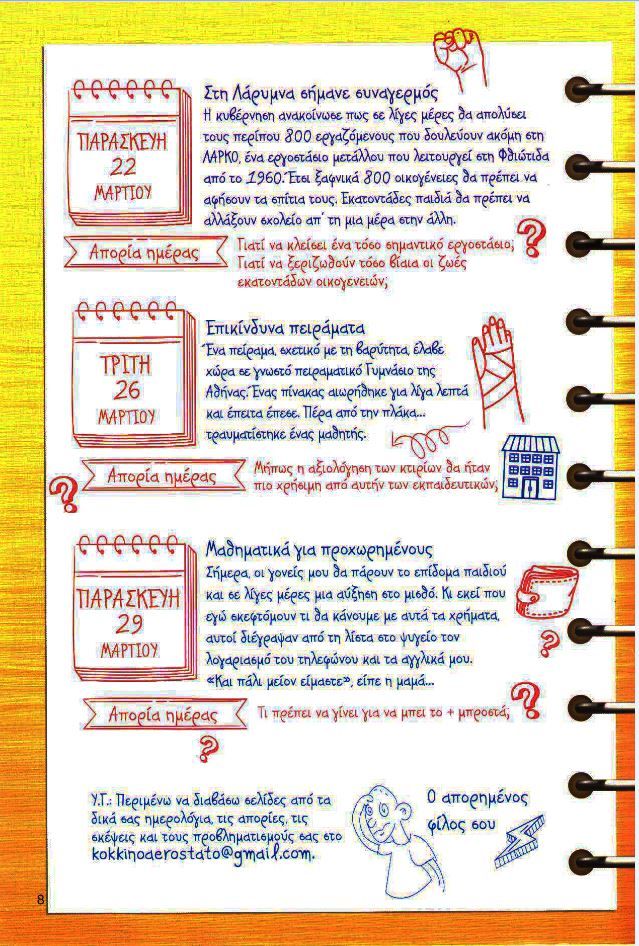 ΠΑΡΑΣΚΕΥΗ
22
ΜΑΡΤΙΟΥ
Στη Λάρυμνα σήμανε συναγερμός
Η κυβέρνηση ανακοίνωσε πως σε λίγες μέρες θα απολύσει
τους περίπου 800 εργαζόμενους που δουλεύουν ακόμη στη
ΛΑΡΚΟ, ένα εργοστάσιο μετάλλου που λειτουργεί στη Φθιώτιδα
από το 1960. Έτσι ξαφνικά 800 οικογένειες θα πρέπει να
αφήσουν τα σπίτια τους. Εκατοντάδες παιδιά θα πρέπει να
αλλάξουν σχολείο απ΄ τη μια μέρα στην άλλη.
Απορία ημέρας
Γιατί να κλείσει ένα τόσο σημαντικό εργοστάσιο;
Γιατί να ξεριζωθούν τόσο βίαια οι ζωές
εκατοντάδων οικογενειών;
?
ΤΡΙΤΗ
26
ΜΑΡΤΙΟΥ
Επικίνδυνα πειράματα
Ένα πείραμα, σχετικό με τη βαρύτητα, έλαβε
χώρα σε γνωστό πειραματικό Γυμνάσιο της
Αθήνας. Ένας πίνακας αιωρήθηκε για λίγα λεπτά
και έπειτα έπεσε. Πέρα από την πλάκα...
τραυματίστηκε ένας μαθητής.
?
Απορία ημέρας
Μήπως η αξιολόγηση των κτιρίων θα ήταν
πιο χρήσιμη από αυτήν των εκπαιδευτικών;
ΠΑΡΑΣΚΕΥΗ
29
ΜΑΡΤΙΟΥ
Μαθηματικά για προχωρημένους
Σήμερα, οι γονείς μου θα πάρουν το επίδομα παιδιού
και σε λίγες μέρες μια αύξηση στο μισθό. Κι εκεί που
εγώ σκεφτόμουν τι θα κάνουμε με αυτά τα χρήματα,
αυτοί διέγραψαν από τη λίστα στο ψυγείο τον
λογαριασμό του τηλεφώνου και τα αγγλικά μου.
«Και πάλι μείον είμαστε», είπε η μαμά...
?
Απορία ημέρας
Τι πρέπει να γίνει για να μπει το + μπροστά;
?
?
Υ.Γ.: Περιμένω να διαβάσω σελίδες από τα
δικά σας ημερολόγια, τις απορίες, τις
σκέψεις και τους προβληματισμούς σας στο
kokkinoaerostato@gmail.com.
Ο απορημένος
φίλος σου
8